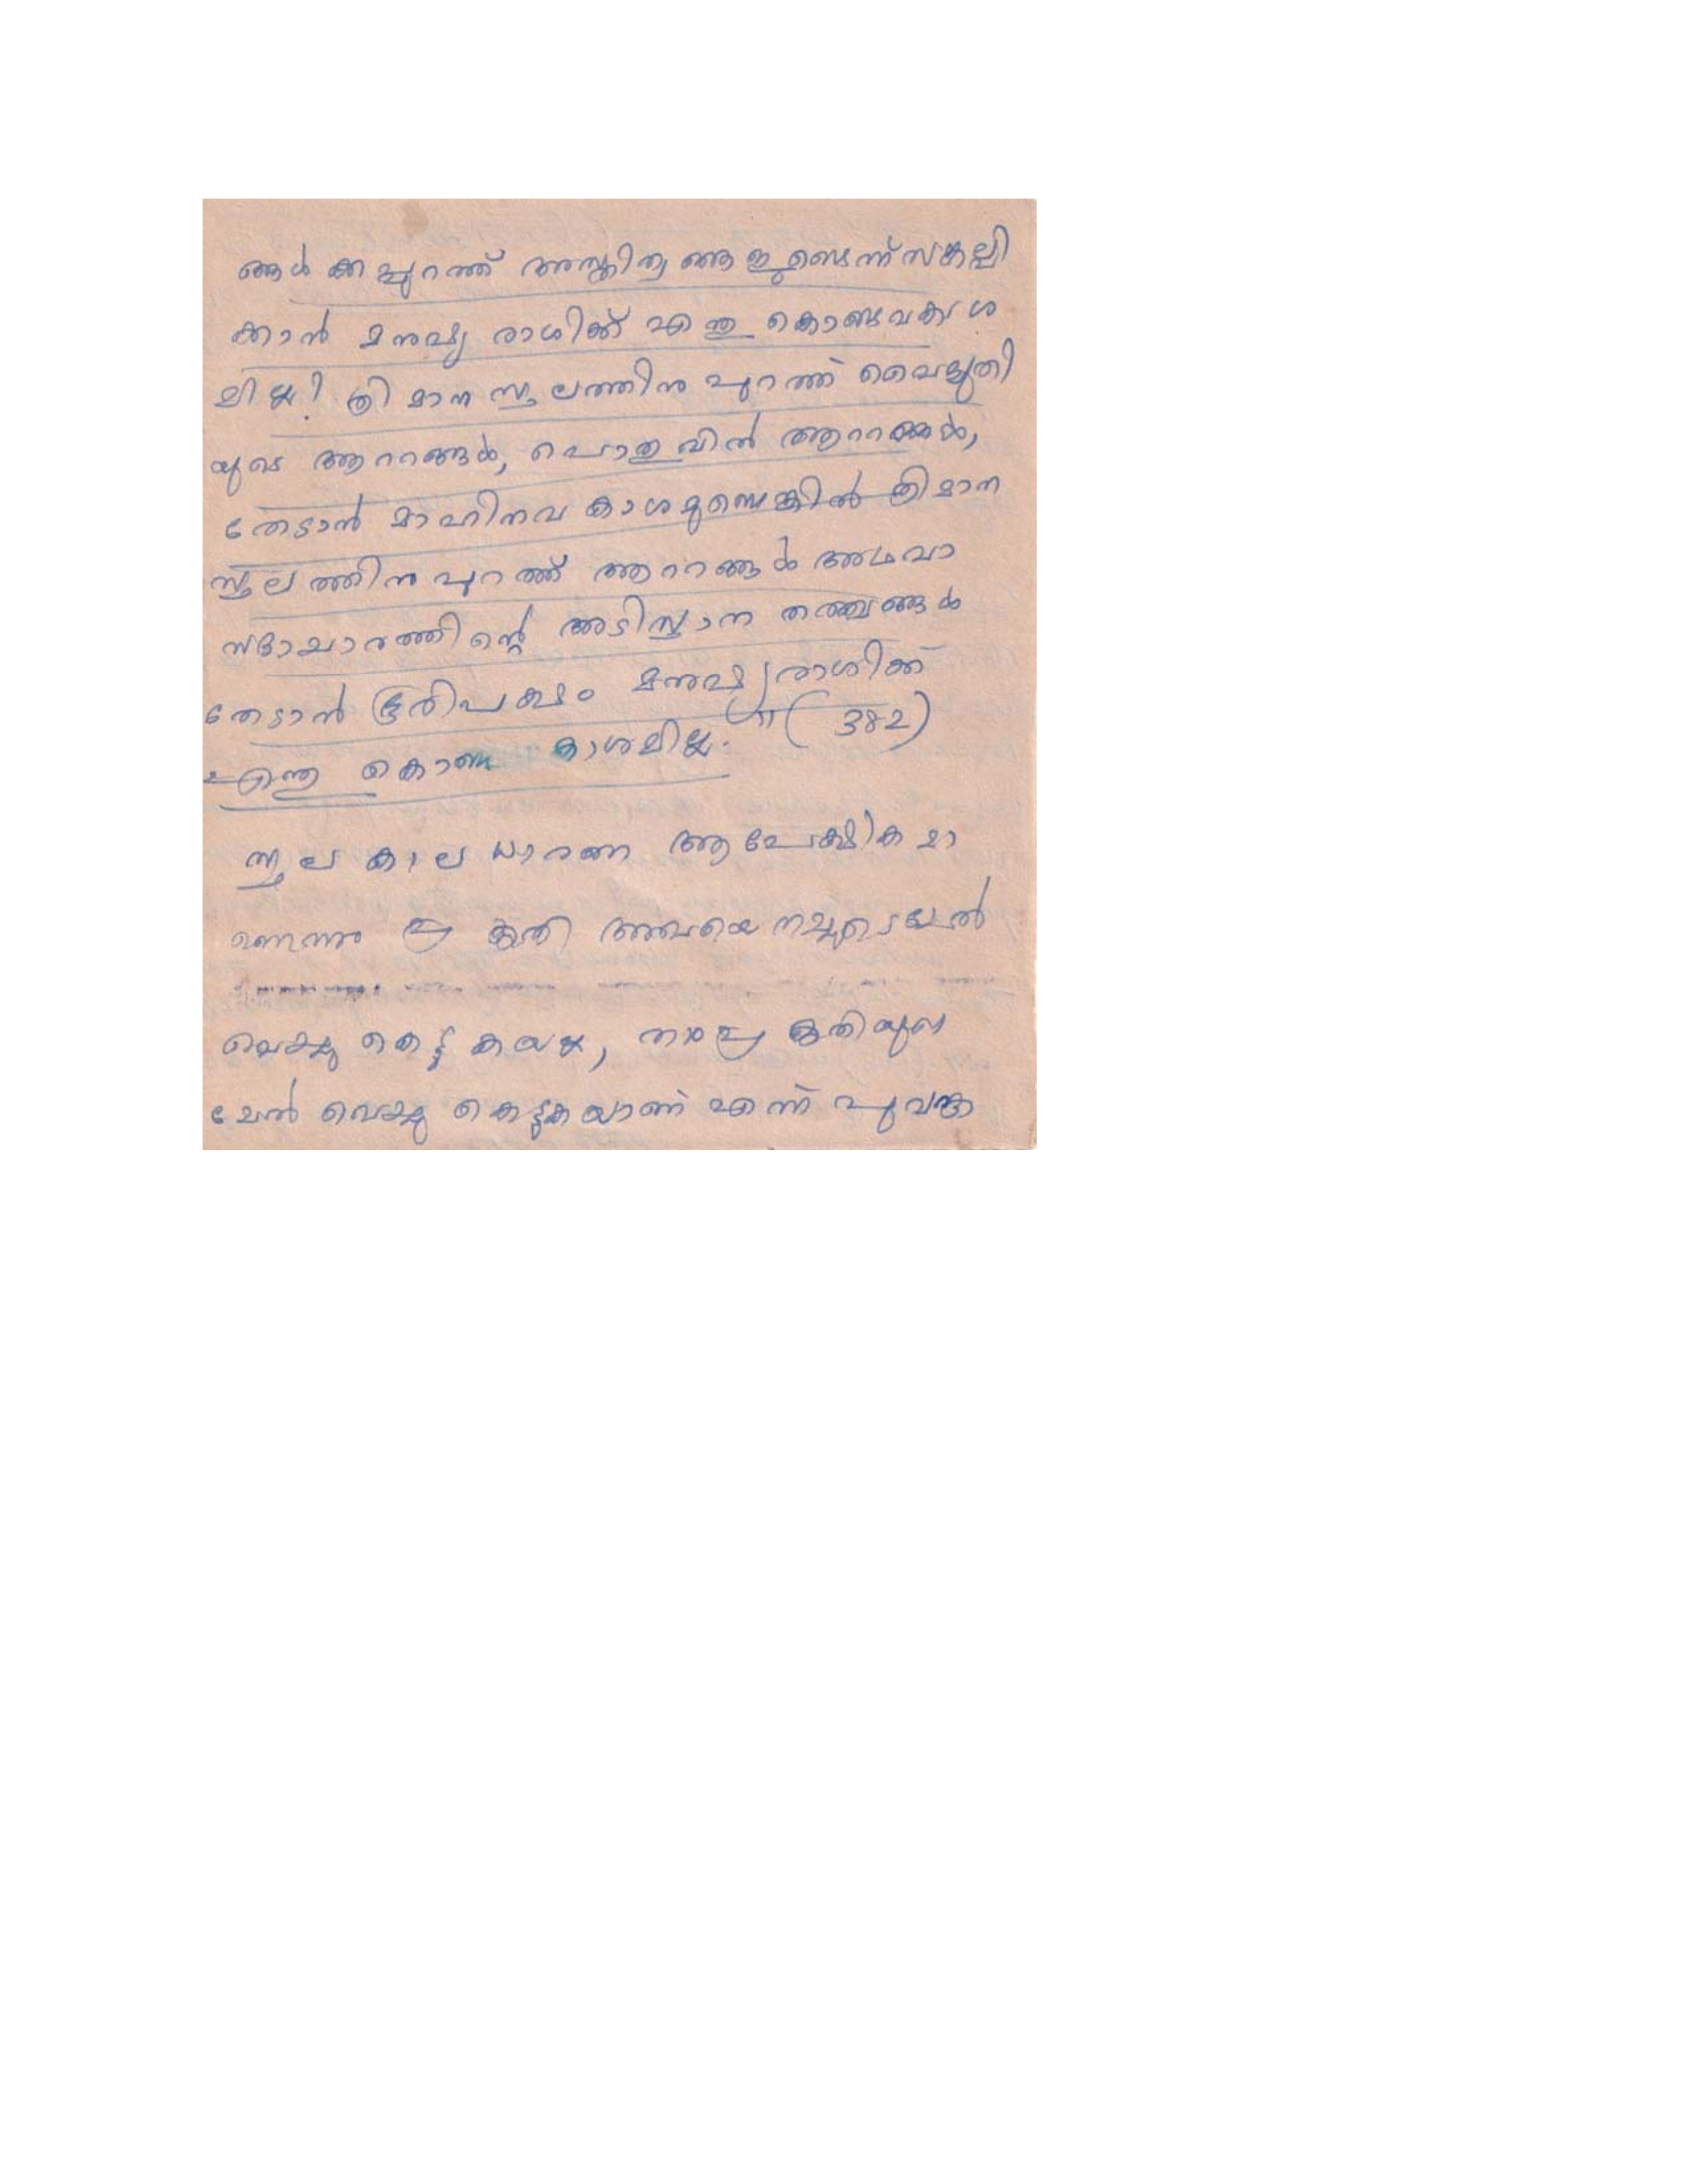 ങ്ങൾക്കപ്പുറത്ത് അസ്തിത്വങ്ങളുണ്ടെന്ന് സങ്കല്പി
ക്കാൻ മനുഷ്യ രാശിക്ക് എന്തു കൊണ്ടവകാശ
മില്ല! ത്രിമാന സ്ഥലത്തിനു പുറത്ത് വൈദ്യുതി
യുടെ ആററങ്ങൾ, പൊതുവിൽ ആററങ്ങൾ,
തേടാൻ മാഹിനവകാശമുണ്ടെങ്കിൽ ത്രിമാന
സ്ഥലത്തിനു പുറത്ത് ആററങ്ങൾ അഥവാ
സദാചാരത്തിന്റെ അടിസ്ഥാന തത്ത്വങ്ങൾ
തേടാൻ ഭൂരിപക്ഷം മനുഷ്യരാശിക്ക്
എന്തു കൊണ്ട കാശമില്ല." (382)
സ്ഥല കാല ധാരണ ആപേക്ഷികമാ
ണെന്നു പ്രകൃതി അവയെ നമ്മുടെമേൽ
വെച്ചു കെട്ടുകയല്ല, നാം പ്രകൃതിയുടെ
മേൽ വെച്ചു കെട്ടുകയാണ് എന്ന്